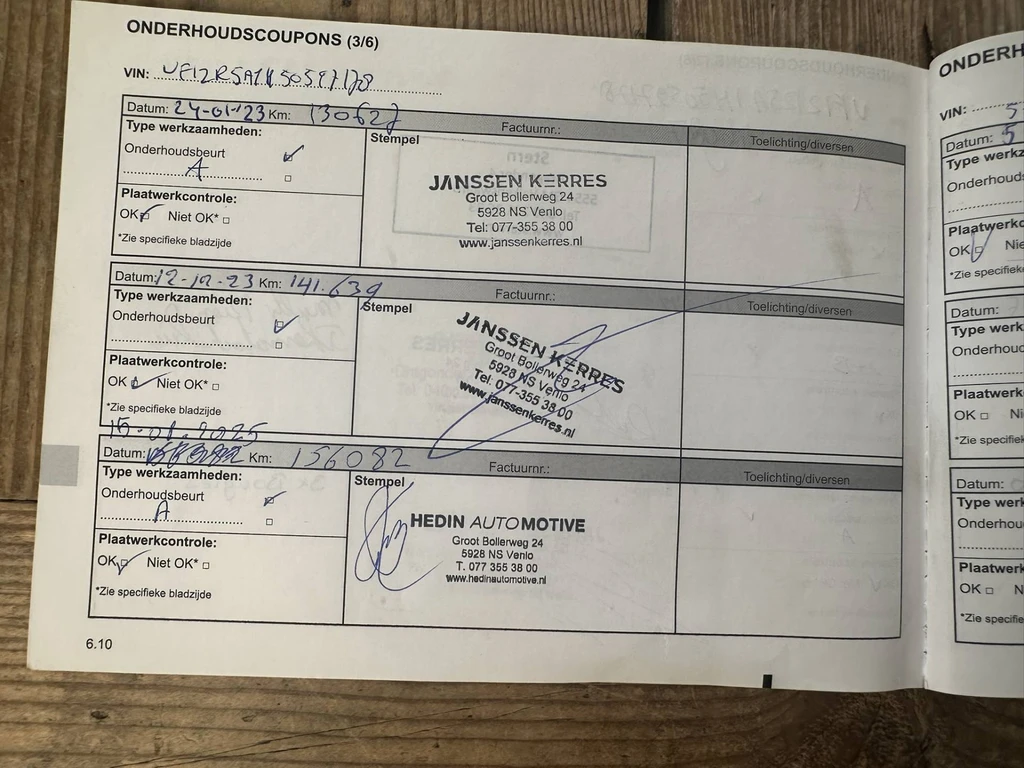 ONDERHOUDSCOUPONS (3/6)
VIN:
Datum: 24-01-'23 Km: 130627 Factuurnr.: Toelichting/diversen
Type werkzaamheden:
Onderhoudsbeurt
A
Plaatwerkcontrole:
OK Niet OK*
*Zie specifieke bladzijde
Stempel
JANSSEN KERRES
Groot Bollerweg 24
5928 NS Venlo
Tel: 077-355 38 00
www.janssenkerres.nl
Datum: 12-12-23 Km: 141.639 Factuurnr.: Toelichting/diversen
Type werkzaamheden:
Onderhoudsbeurt
Plaatwerkcontrole:
OK Niet OK*
*Zie specifieke bladzijde
Stempel
JANSSEN KERRES
Groot Bollerweg 24
5928 NS Venlo
Tel: 077-355 38 00
www.janssenkerres.nl
15-01-2025
Datum: Km: 156082 Factuurnr.: Toelichting/diversen
Type werkzaamheden:
Onderhoudsbeurt
A
Plaatwerkcontrole:
OK Niet OK*
*Zie specifieke bladzijde
Stempel
HEDIN AUTOMOTIVE
Groot Bollerweg 24
5928 NS Venlo
T. 077 355 38 00
www.hedinautomotive.nl
6.10
VIN:
Datum:
OK
Datum:
OK
Datum:
OK